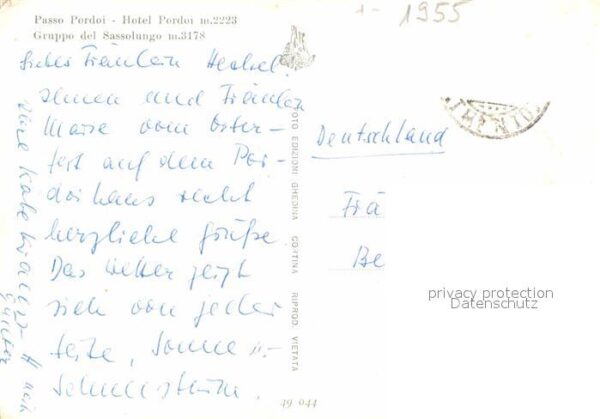 Passo Pordoi - Hotel Pordoi m.2223
Gruppo del Sassolungo m.3178
1955
Liebes Fräulein Heckel!
Ihnen und Fräulein
Marse vom Oster-
fest auf dem Por-
doihaus recht
herzliche Grüße.
Das Wetter zeigt
sich von jeder
Seite, Sonne u.
Schneesturm.
Ihre Käte
FOTO EDIZIONI GHEDINA CORTINA RIPROD. VIETATA
Deutschland
Frä
Be
privacy protection
Datenschutz
49 044